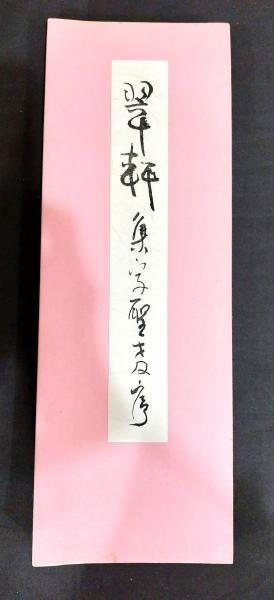 翠軒集字聖教序